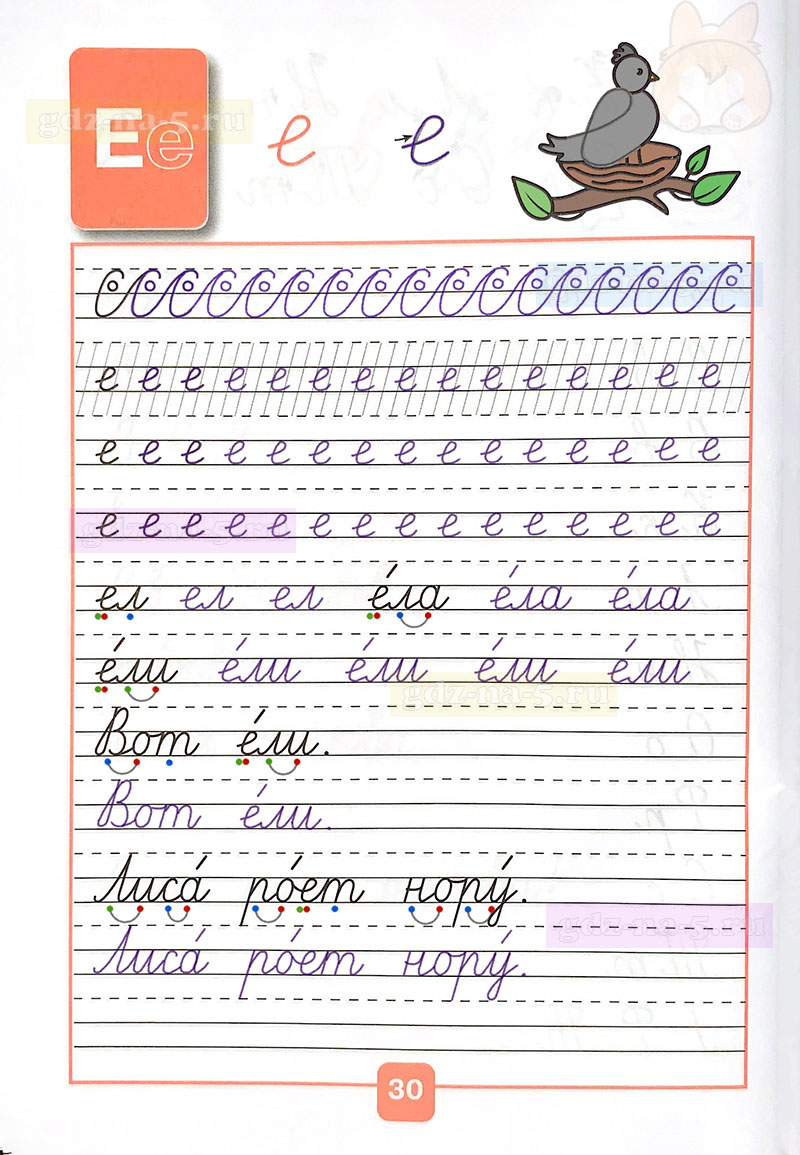 gdz-na-5.ru
Ее е е
е е е е е е е е е е е е е е е
е е е е е е е е е е е е е е е
gdz-na-5.ru
е е е е е е е е е е е е е е е
ел ел ел е́ла е́ла е́ла
е́ли е́ли е́ли е́ли е́ли
gdz-na-5.ru
Вот е́ли.
Вот е́ли.
Лиса́ ро́ет нору́.
gdz-na-5.ru
Лиса́ ро́ет нору́.
30